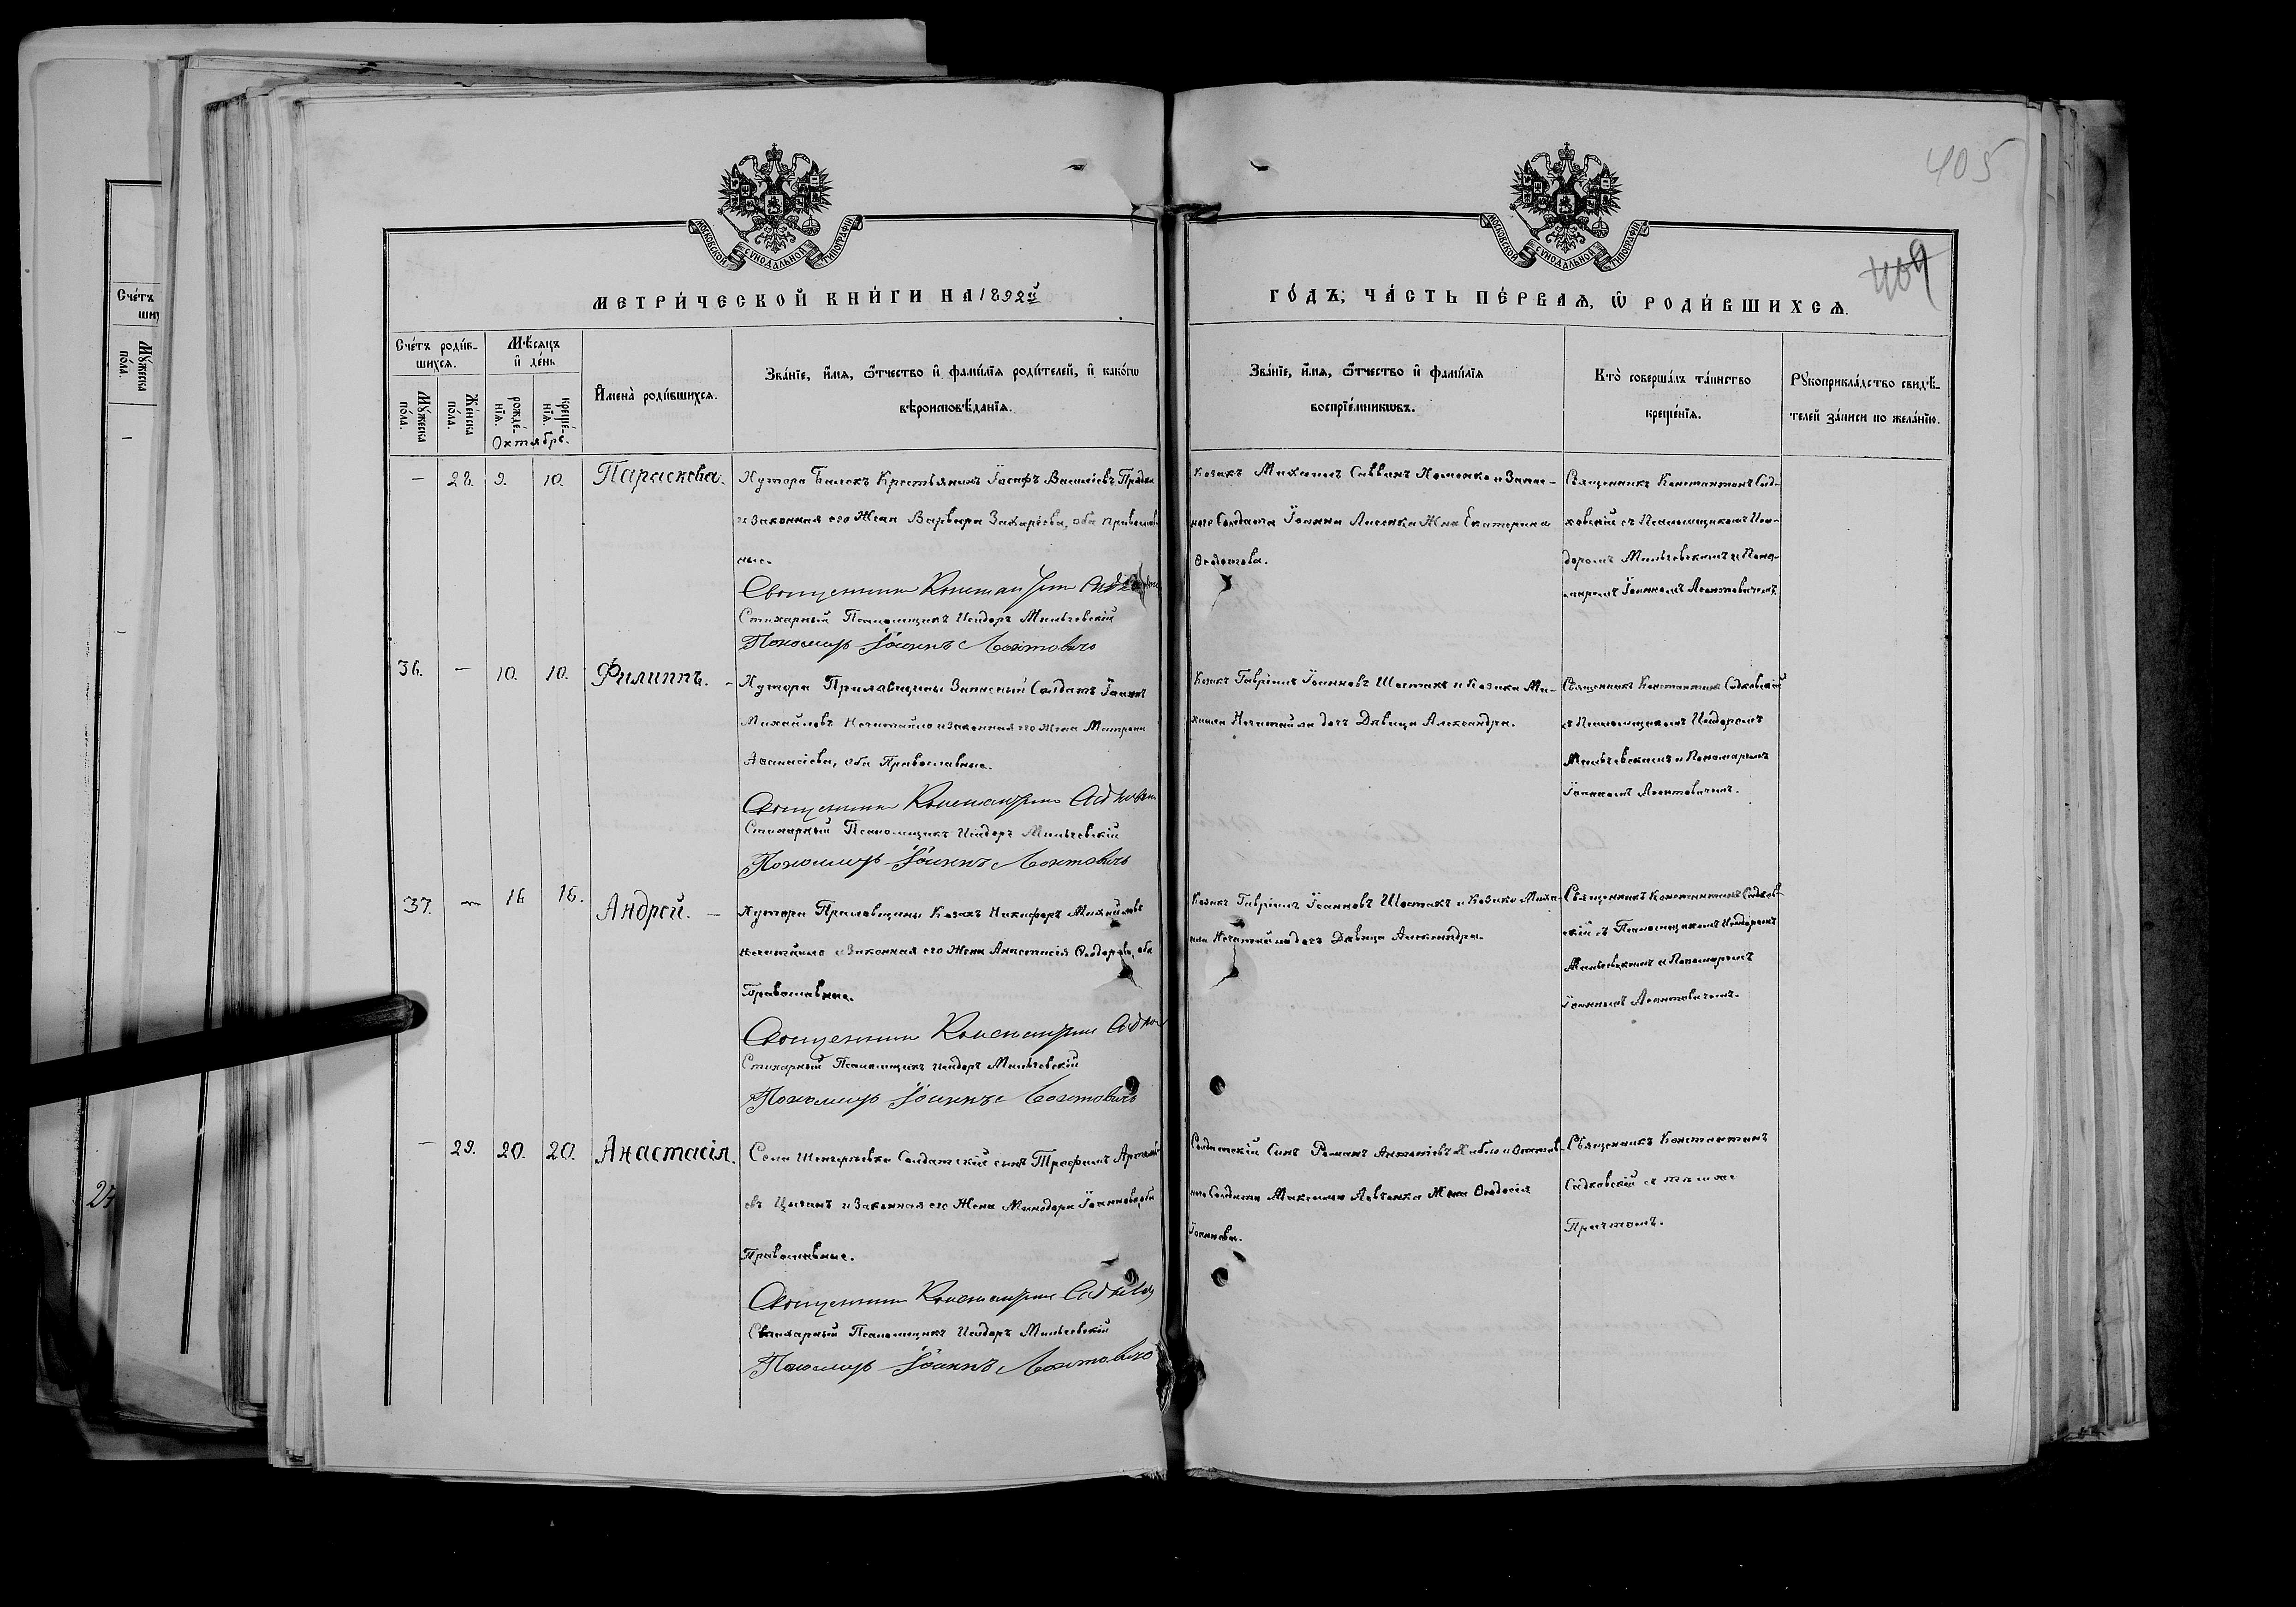 405
409
МОСКОВСКОЙ СѴНОДАЛЬНОЙ ТИПОГРАФІИ
МОСКОВСКОЙ СѴНОДАЛЬНОЙ ТИПОГРАФІИ
МЕТРИ́ЧЕСКОЙ КНИ́ГИ НА 1892й
ГО́ДЪ, ЧА́СТЬ ПЕ́РВАѦ, Ѡ҆ РОДИ́ВШИХСѦ.
Сче́тъ роди́в-
шихся.
Мꙋ́жеска по́ла.
Же́нска по́ла.
Мѣ́сяцъ и҆ де́нь
рожде́нїя.
креще́нїя.
Октябрь.
И҆мена̀ роди́вшихся.
Зва́нїе, и҆́мя, ѻ҆́тчество и҆ фами́лїя роди́телей, и҆ како́гѡ
вѣроисповѣ́данїя.
Зва́нїе, и҆́мя, ѻ҆́тчество и҆ фами́лїя
воспрїе́мникѡвъ.
Кто̀ соверша́лъ та́инство
креще́нїя.
Рꙋкоприкла́дство свидѣ́-
телей за́писи по жела́нїю.
— 28. 9. 10. Параскева.
Хутора Крестьянинъ Іосифъ Васильевъ
и Законная его Жена Варвара Захаріева, оба Православ
ные.
Священникъ Константинъ
Стихарный Псаломщикъ Исидоръ Мильчевскій
Пономарь Іоаннъ Леонтовичъ
Козакъ Михаилъ Саввинъ и Запас-
наго Солдата Іоанна Лисенка Жена Екатерина
Ѳеодотова.
Священникъ Константинъ Сад-
ковскій съ Псаломщикомъ Иси-
доромъ Мильчевскимъ и Поно-
маремъ Іоанномъ Леонтовичемъ.
36. — 10. 10. Филиппъ.
Хутора Прилавщины Запасный Солдатъ Іоаннъ
Михайловъ Нечитайло и законная его Жена Матрона
Аѳанасіева, оба Православные.
Священникъ Константинъ Садковскій
Стихарный Псаломщикъ Исидоръ Мильчевскій
Пономарь Іоаннъ Леонтовичъ
Козакъ Гавріилъ Іоанновъ Шостакъ и Козака Ми-
хаила Нечитайла дочь Дѣвица Александра.
Священникъ Константинъ Садковскій
съ Псаломщикомъ Исидоромъ
Мильчевскимъ и Пономаремъ
Іоанномъ Леонтовичемъ.
37. — 16 16. Андрей.
Хутора Прилавщины Козакъ Никифоръ Михайловъ
Нечитайло и Законная его Жена Анастасія Ѳеодорова, оба
Православные.
Священникъ Константинъ Садко
Стихарный Псаломщикъ Исидоръ Мильчевскій
Пономарь Іоаннъ Леонтовичъ
Козакъ Гавріилъ Іоанновъ Шостакъ и Козака Миха-
ила Нечитайла дочь Дѣвица Александра.
Священникъ Константинъ Садков-
скій съ Псаломщикомъ Исидоромъ
Мильчевскимъ и Пономаремъ
Іоанномъ Леонтовичемъ.
— 29. 20. 20. Анастасія.
Села Солдатскій сынъ Трофимъ Артемі-
евъ Циганъ и Законная его Жена Минодора Іоаннова, оба
Православные.
Священникъ Константинъ Садков
Стихарный Псаломщикъ Исидоръ Мильчевскій
Пономарь Іоаннъ Леонтовичъ
Солдатскій Сынъ Романъ Антоніевъ и Отстав-
наго Солдата Максима Левченка Жена Ѳеодосія
Іоаннова.
Священникъ Константинъ
Садковскій съ тѣмъ же
Причтомъ.
Сче́тъ
Мꙋ́жеска по́ла.
24